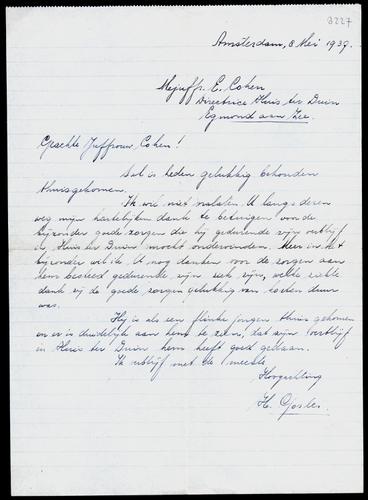 3227
Amsterdam, 8 Mei 1939.
Mejuffr. E. Cohen
Directrice Huis ter Duin
Egmond aan Zee.
Geachte Juffrouw Cohen!
Sal is heden gelukkig behouden
thuisgekomen.
Ik wil niet nalaten U langs deren
weg mijn hartelijken dank te betuigen voor de
bijzonder goede zorgen die hij gedurende zijn verblijf
in Huis ter Duin mocht ondervinden. Meer in het
bijzonder wil ik U nog danken voor de zorgen aan
hem besteed gedurende zijn ziek zijn, welke ziekte
dank zij de goede zorgen gelukkig van korten duur
was.
Hij is als een flinke jongen thuis gekomen
en er is duidelijk aan hem te zien, dat zijn verblijf
in Huis ter Duin hem heeft goed gedaan.
Ik verblijf met de meeste
Hoogachting
H.